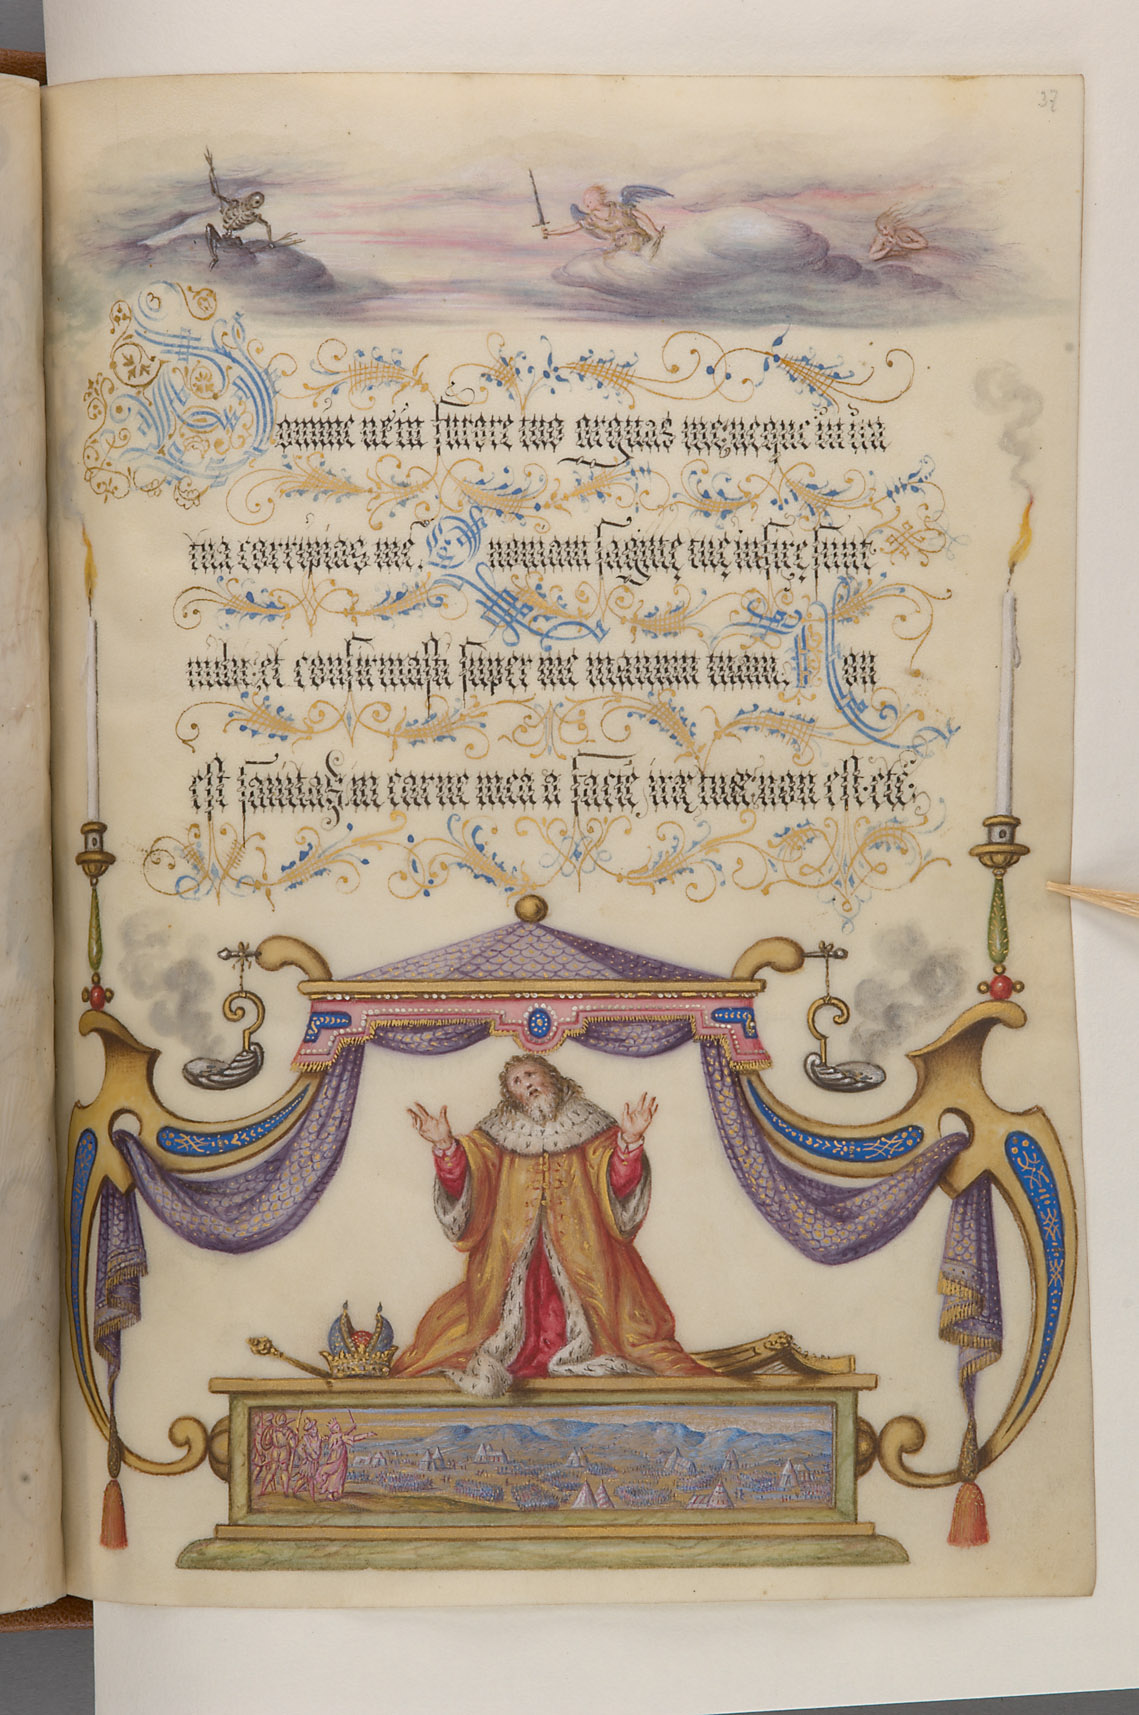 37
Domine ne in furore tuo arguas me, neque in ira
tua corripias me. Quoniam sagittę tuę infixę sunt
mihi: et confirmasti super me manum tuam. Non
est sanitas in carne mea a facie irę tuæ: non est. etc.